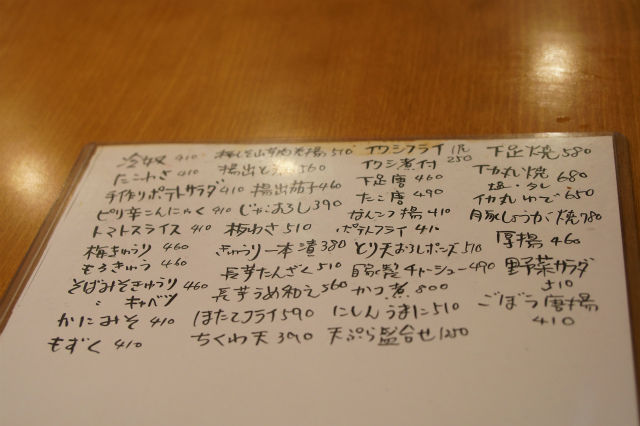 冷奴 410
たこわさ 410
手作りポテトサラダ 410
ピリ辛こんにゃく 410
トマトスライス 410
梅きゅうり 460
もろきゅう 460
そばみそきゅうり 460
〃 キャベツ
かにみそ 410
もずく 410
510
揚出とうふ 560
揚出茄子 460
じゃこおろし 390
梅わさ 510
きゅうり一本漬 380
長芋たんざく 510
長芋うめ和え 560
ほたてフライ 590
ちくわ天 390
イワシフライ 1尾 250
イワシ煮付
下足唐 460
たこ唐 490
がんこつ揚 410
ポテトフライ 410
とり天おろしポンズ 510
自家製チャーシュー 490
かつ煮 800
にしんうまに 510
天ぷら盛合せ 1250
下足焼 580
イカ丸焼 680
塩・タレ
イカ丸ゆで 650
豚しょうが焼 780
厚揚 460
野菜サラダ 510
ごぼう唐揚 410